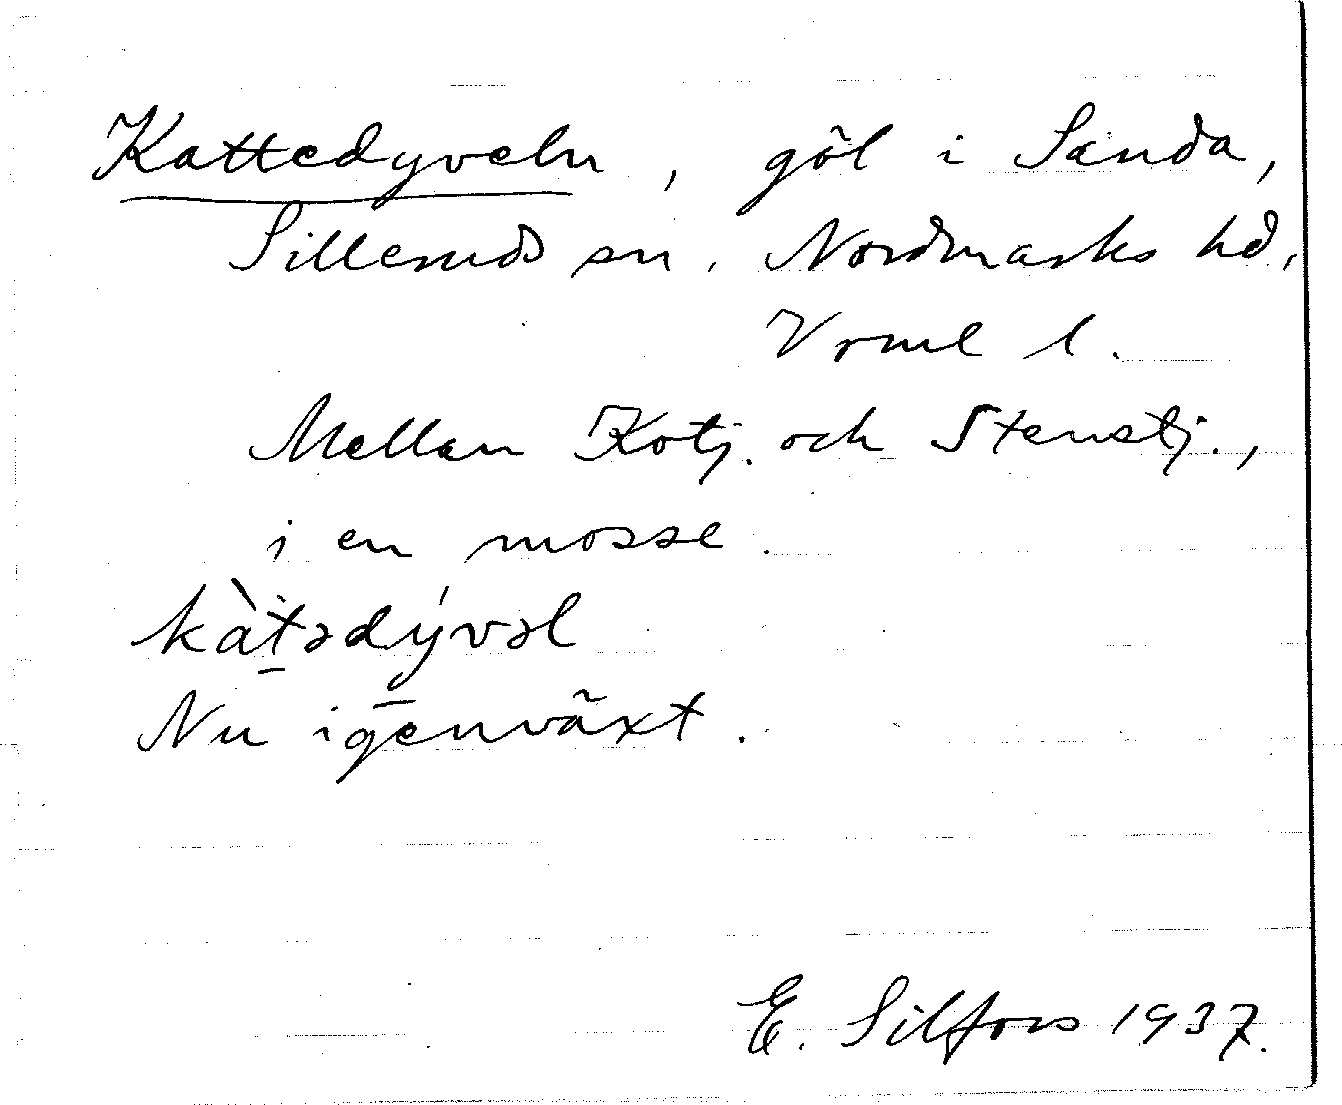 Kattedyveln, göl i Sanda,
Silleruds sn, Nordmarks hd,
Vrml l.
Mellan Kotj. och Stenstj.,
i en mosse.
kàt̠ədývəl
Nu igenväxt.
E. Silfors 1937.